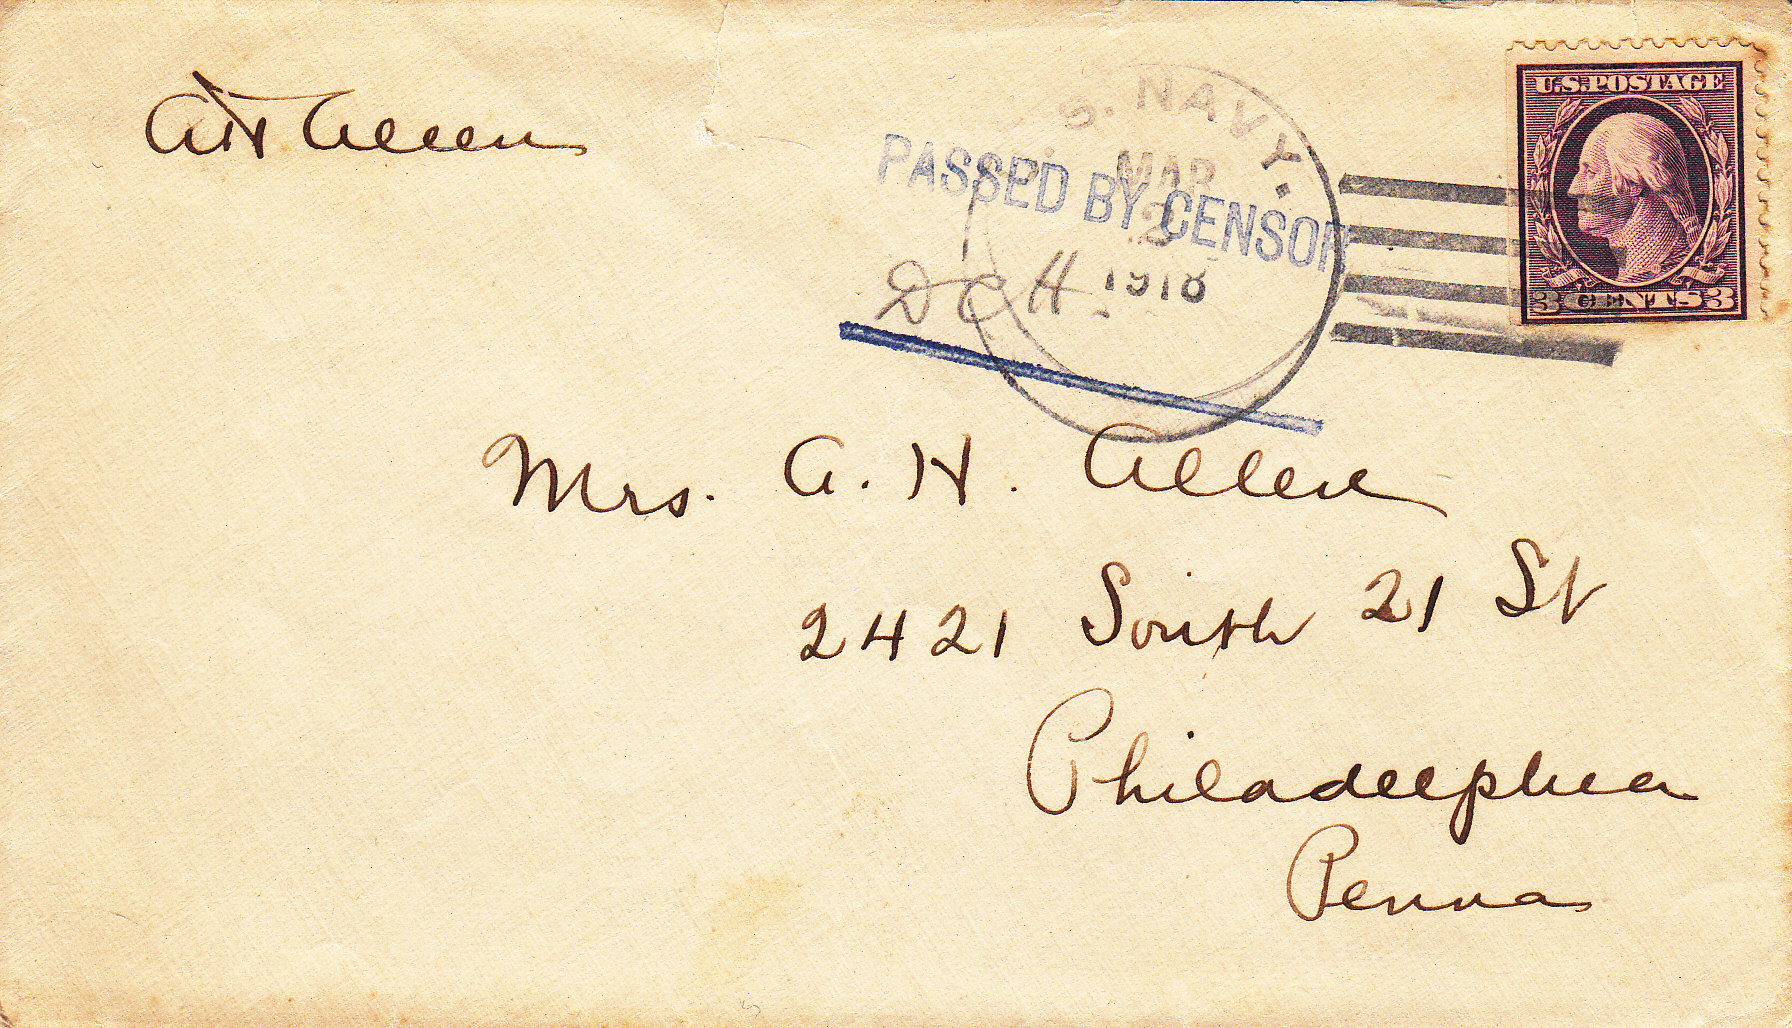 A H Allen
U.S. POSTAGE
3 CENTS 3
S. NAVY.
MAR
2
1918
PASSED BY CENSOR
DCH
Mrs. A. H. Allen
2421 South 21 St
Philadelphia
Penna